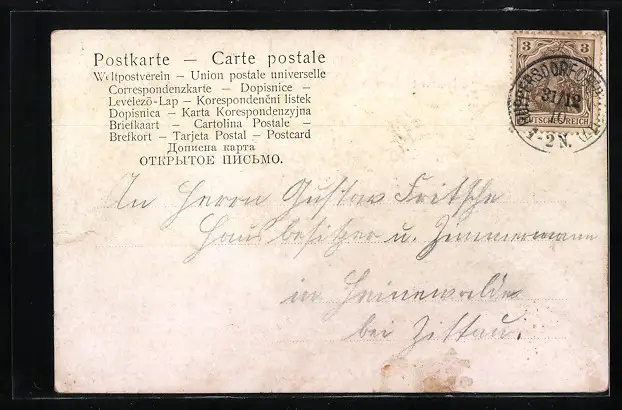 Postkarte — Carte postale
Weltpostverein — Union postale universelle
Correspondenzkarte — Dopisnice —
Levélező-Lap — Korespondenční listek
Dopisnica — Karta Korespondenzyjna
Briefkaart — Cartolina Postale —
Brefkort — Tarjeta Postal — Postcard
Дописна карта
ОТКРЫТОЕ ПИСЬМО.
3 3
DEUTSCHES REICH
31/12
1-2 N.
An Herrn Gustav Fritsche
Hausbesitzer u. Zimmermann
in Heinewalde
bei Zittau.